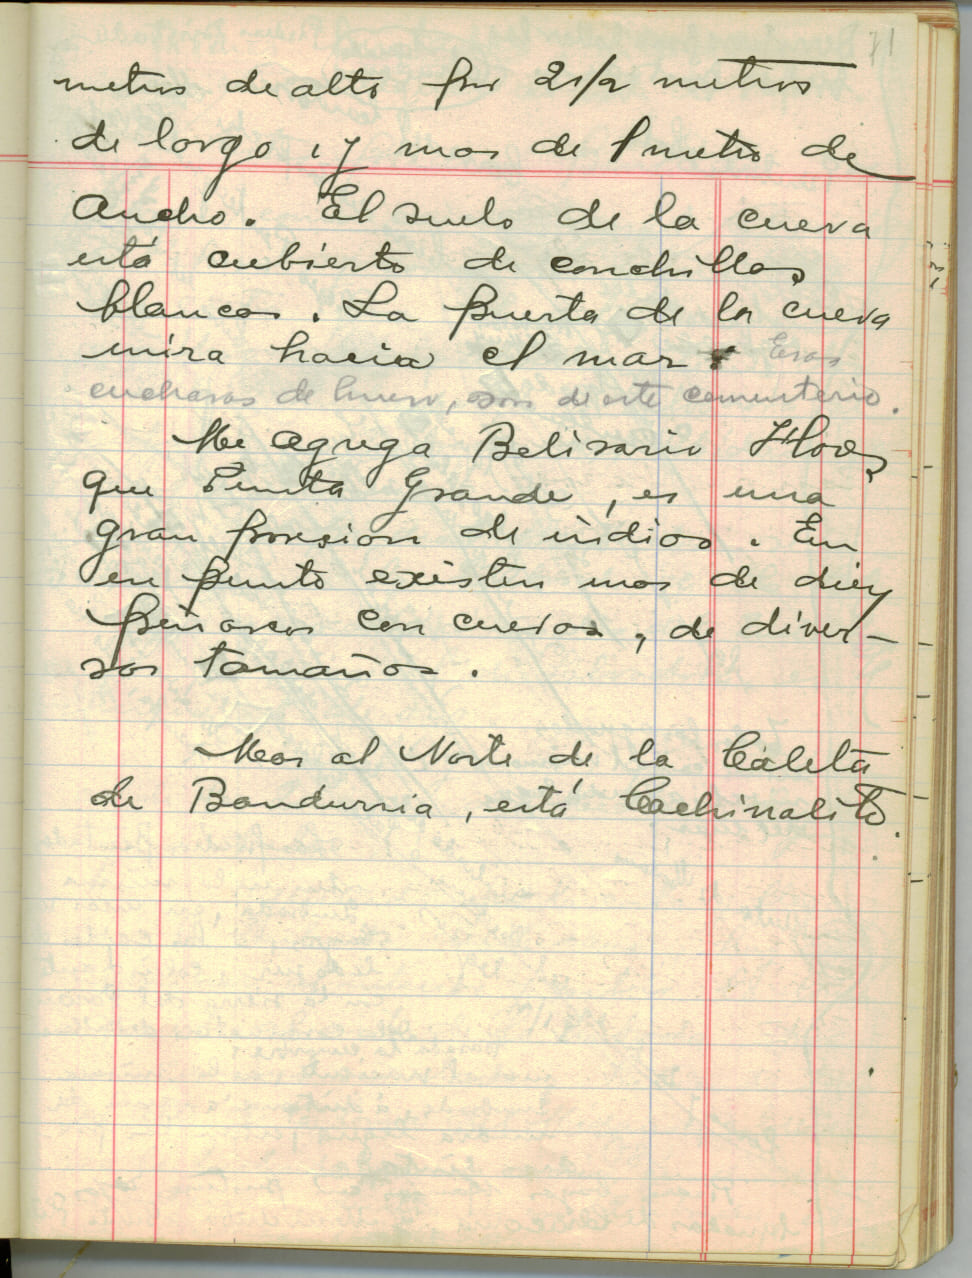 71
metros de alto por 2 1/2 metros
de largo, y mas de 1 metro de
ancho. El suelo de la cueva
está cubierto de conchillas
blancas. La puerta de la cueva
mira hacia el mar. Esas
cucharas de hueso, son de este cementerio.
Me agrega Belisario Flores,
que Punta Grande, es una
gran posesion de indios. En
en punto existen mas de diez
peñascos con cuevas, de diver-
sos tamaños.
Mas al Norte de la Caleta
de Bandurria, está Cachinalito.